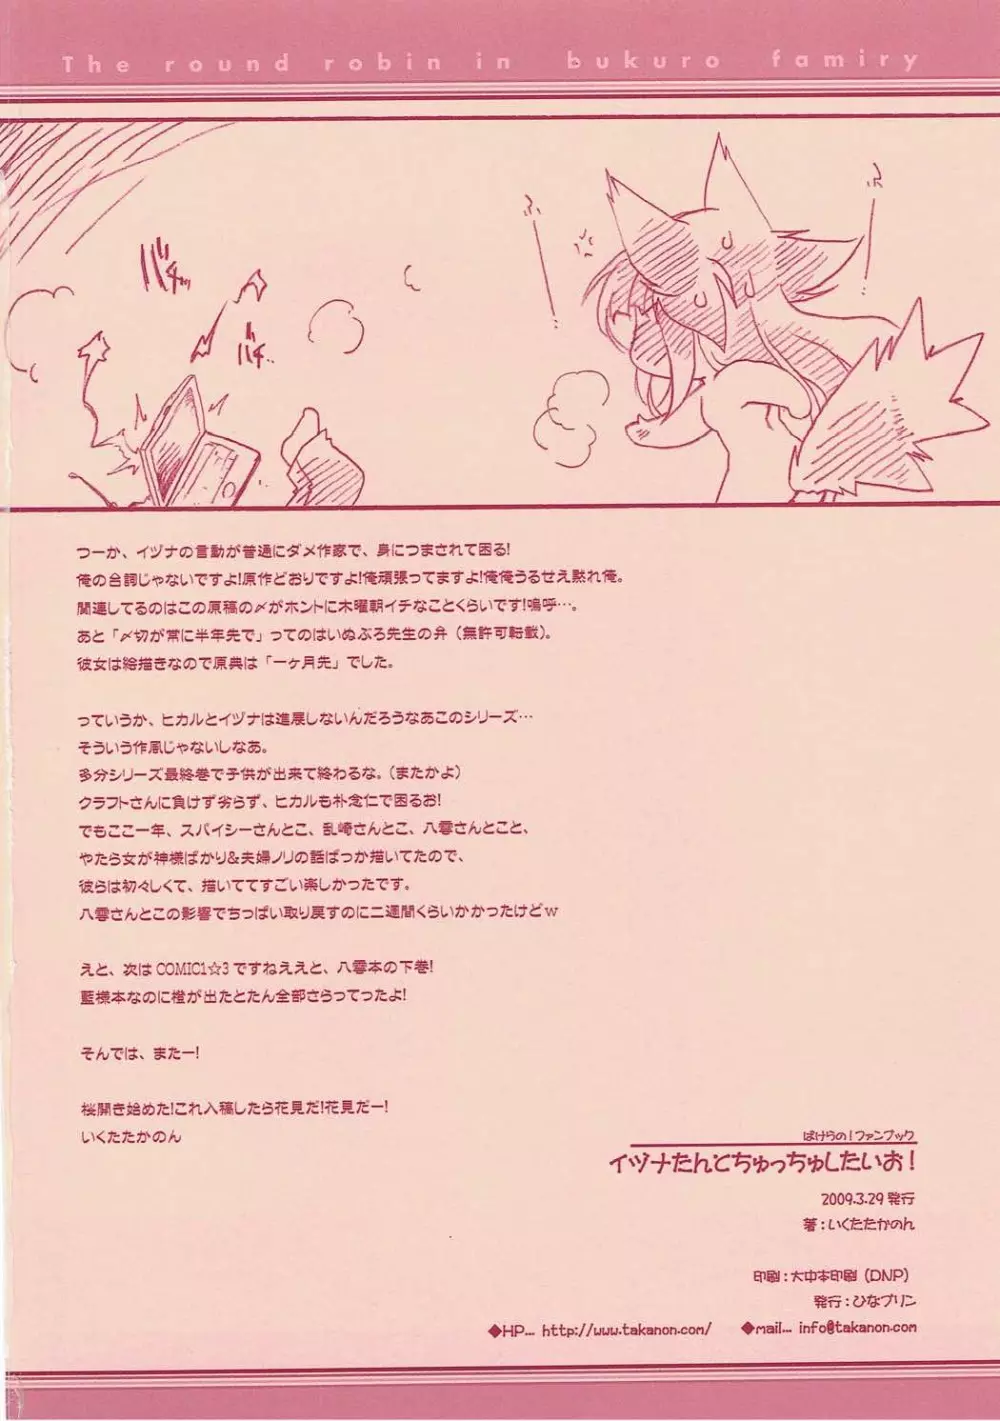 The round robin in bukuro famiry
バチッ
バチ…
ふ
ん
つーか、イヅナの言動が普通にダメ作家で、身につまされて困る!
俺の台詞じゃないですよ!原作どおりですよ!俺頑張ってますよ!俺俺うるせえ黙れ俺。
関連してるのはこの原稿の〆がホントに木曜朝イチなことくらいです!嗚呼…。
あと「〆切が常に半年先で」ってのはいぬぶろ先生の弁（無許可転載）。
彼女は絵描きなので原典は「一ヶ月先」でした。
っていうか、ヒカルとイヅナは進展しないんだろうなあこのシリーズ…
そういう作風じゃないしなあ。
多分シリーズ最終巻で子供が出来て終わるな。（またかよ）
クラフトさんに負けず劣らず、ヒカルも朴念仁で困るお!
でもここ一年、スパイシーさんとこ、乱崎さんとこ、八雲さんとこと、
やたら女が神様ばかり&夫婦ノリの話ばっか描いてたので、
彼らは初々しくて、描いててすごい楽しかったです。
八雲さんとこの影響でちっぱい取り戻すのに二週間くらいかかったけどｗ
えと、次は COMIC1☆3 ですねええと、八雲本の下巻!
藍様本なのに橙が出たとたん全部さらってったよ!
そんでは、またー!
桜開き始めた!これ入稿したら花見だ!花見だー!
いくたたかのん
ばけらの!ファンブック
イヅナたんとちゅっちゅしたいお!
2009.3.29 発行
著:いくたたかのん
印刷:大中本印刷（DNP）
発行:ひなプリン
◆HP... http://www.takanon.com/ ◆mail... info@takanon.com